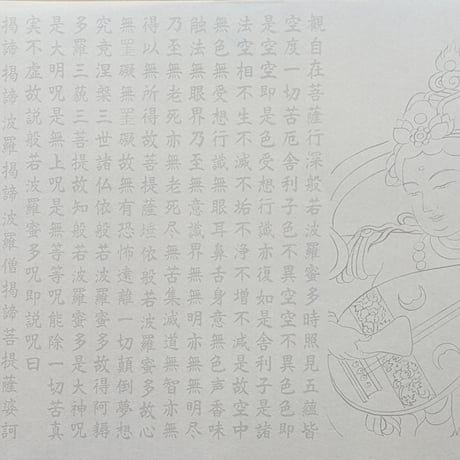 觀自在菩薩行深般若波羅蜜多時照見五蘊皆
空度一切苦厄舍利子色不異空空不異色色即
是空空即是色受想行識亦復如是舍利子是諸
法空相不生不滅不垢不浄不增不減是故空中
無色無受想行識無眼耳鼻舌身意無色声香味
触法無眼界乃至無意識界無無明亦無無明尽
乃至無老死亦無老死尽無苦集滅道無智亦無
得以無所得故菩提薩埵依般若波羅蜜多故心
無罣礙無罣礙故無有恐怖遠離一切顛倒夢想
究竟涅槃三世諸仏依般若波羅蜜多故得阿耨
多羅三藐三菩提故知般若波羅蜜多是大神呪
是大明呪是無上呪是無等等呪能除一切苦真
実不虚故説般若波羅蜜多呪即説呪曰
揭諦揭諦波羅揭諦波羅僧揭諦菩提薩婆訶